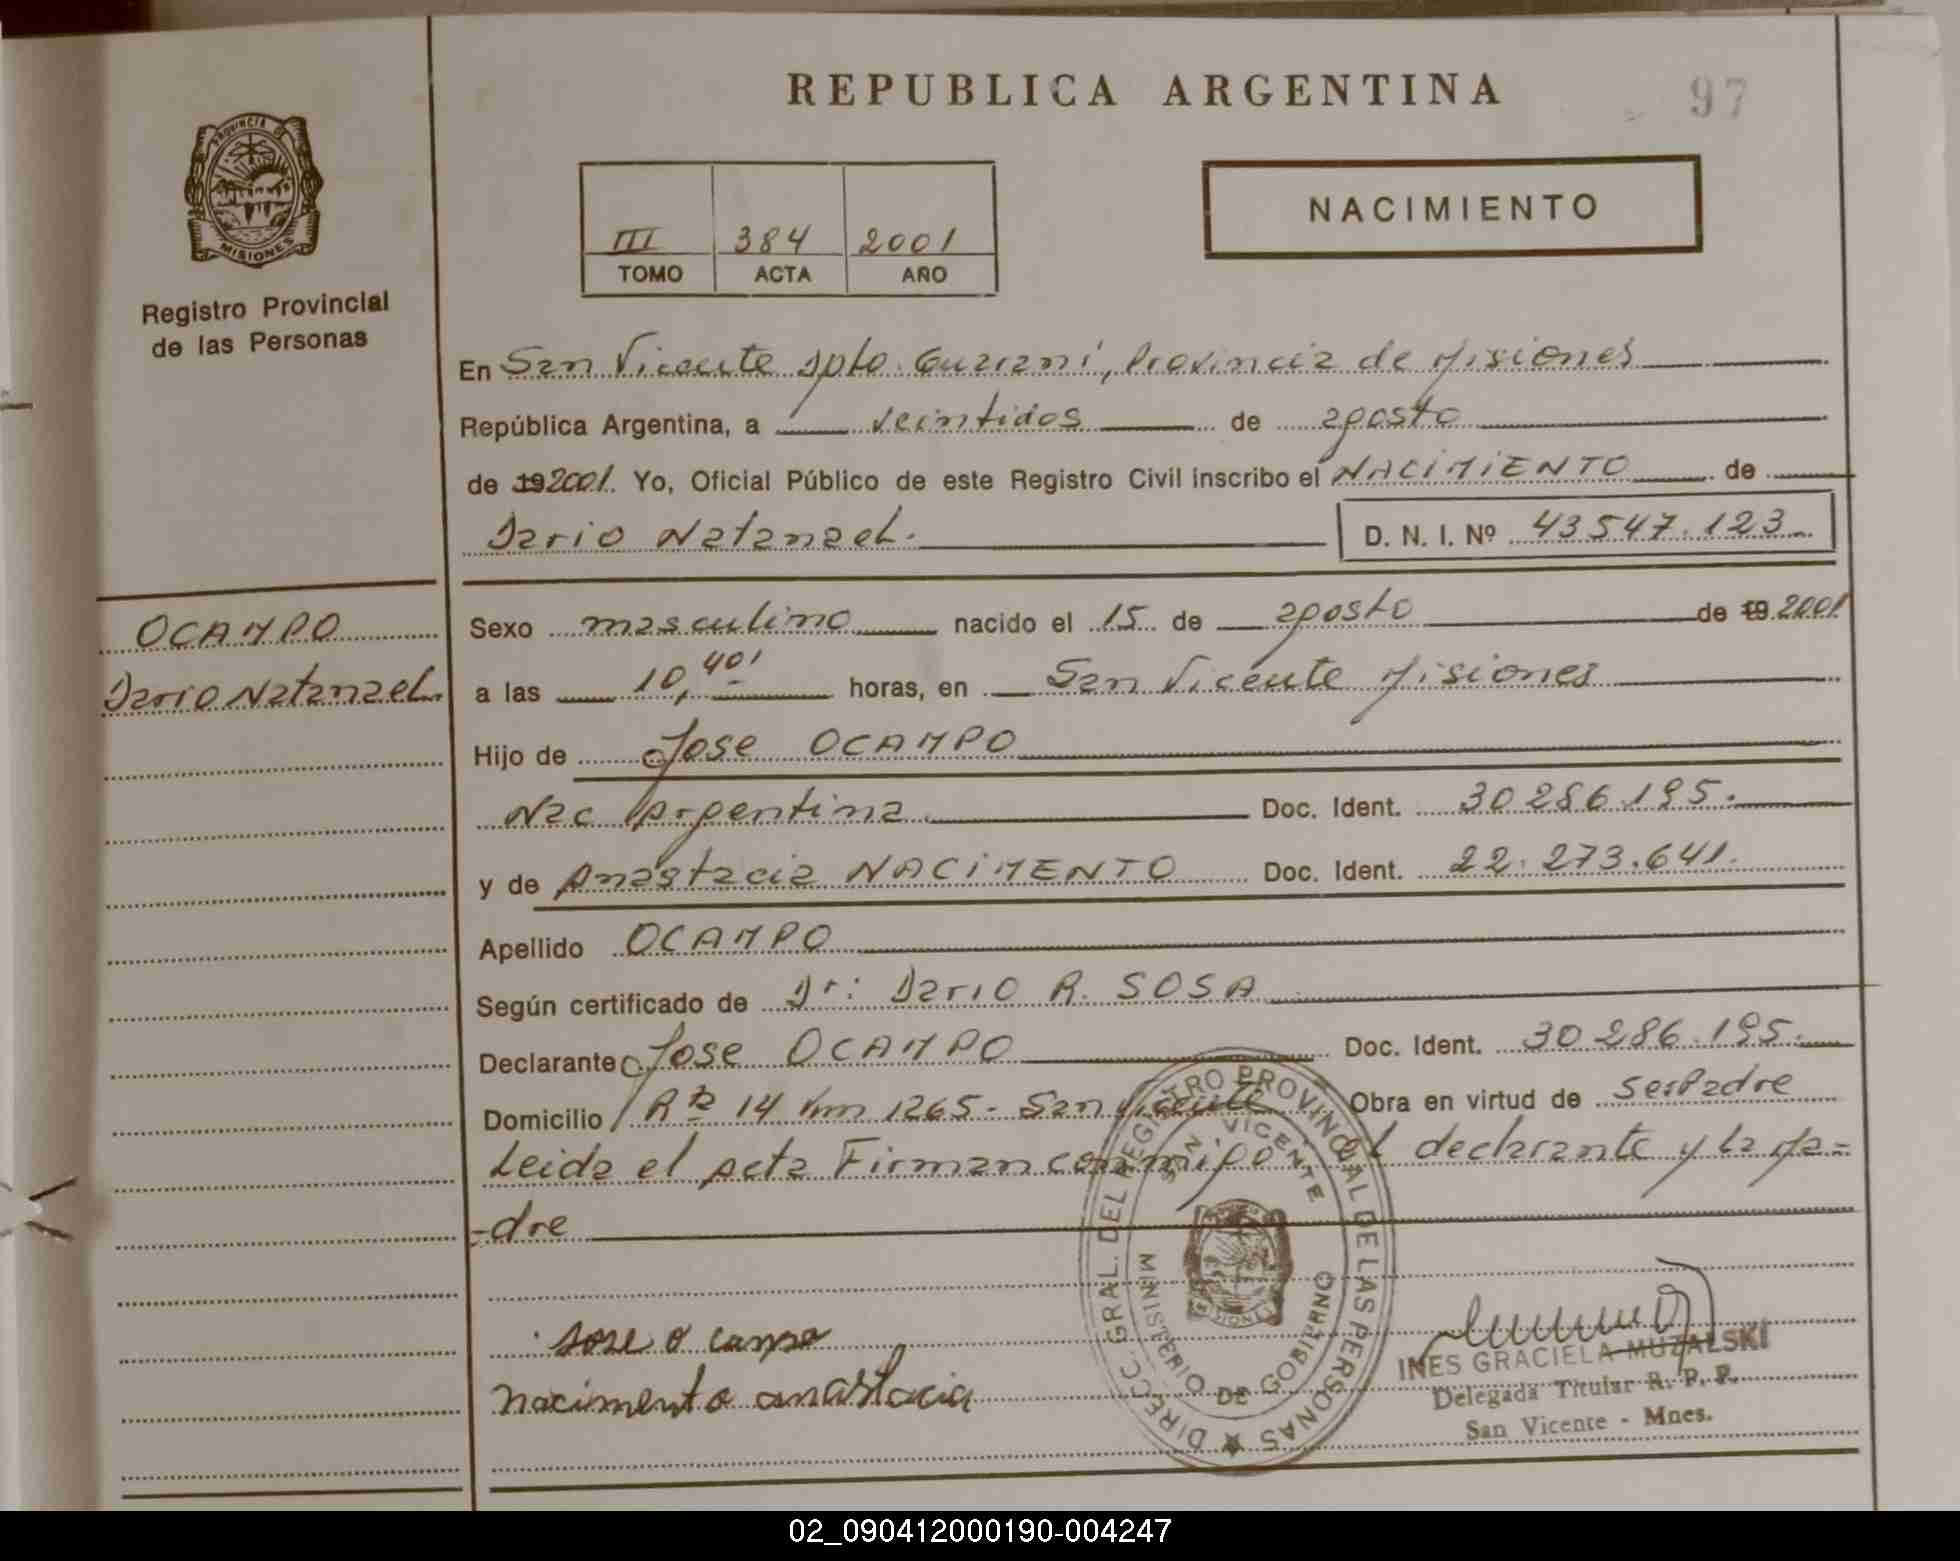 REPUBLICA ARGENTINA
97
PROVINCIA DE
MISIONES
Registro Provincial
de las Personas
III 384 2001
TOMO ACTA AÑO
NACIMIENTO
En San Vicente Dpto. Guarani, Provincia de Misiones
República Argentina, a veintidos de agosto
de 192001. Yo, Oficial Público de este Registro Civil inscribo el NACIMIENTO de
Dario Natanael. D. N. I. Nº 43547.123
OCAMPO
Dario Natanael
Sexo masculino nacido el 15 de agosto de 19 2001
a las 10,40' horas, en San Vicente Misiones
Hijo de Jose OCAMPO
Nac Argentina Doc. Ident. 30286.195.
y de Anastacia NACIMENTO Doc. Ident. 22.273.641.
Apellido OCAMPO
Según certificado de Dr: Dario R. SOSA
Declarante Jose OCAMPO Doc. Ident. 30286.195.
Domicilio Rta 14 Km 1265- San Vicente Obra en virtud de ser Padre
Leida el acta Firman conmigo el declarante y la Ma=
=dre
DIRECC. GRAL. DEL REGISTRO PROVINCIAL DE LAS PERSONAS
SAN VICENTE
MINISTERIO DE GOBIERNO
Jose o campo
nacimento anastacia
INES GRACIELA MUZALSKI
Delegada Titular R. P. P.
San Vicente - Mnes.
02_090412000190-004247